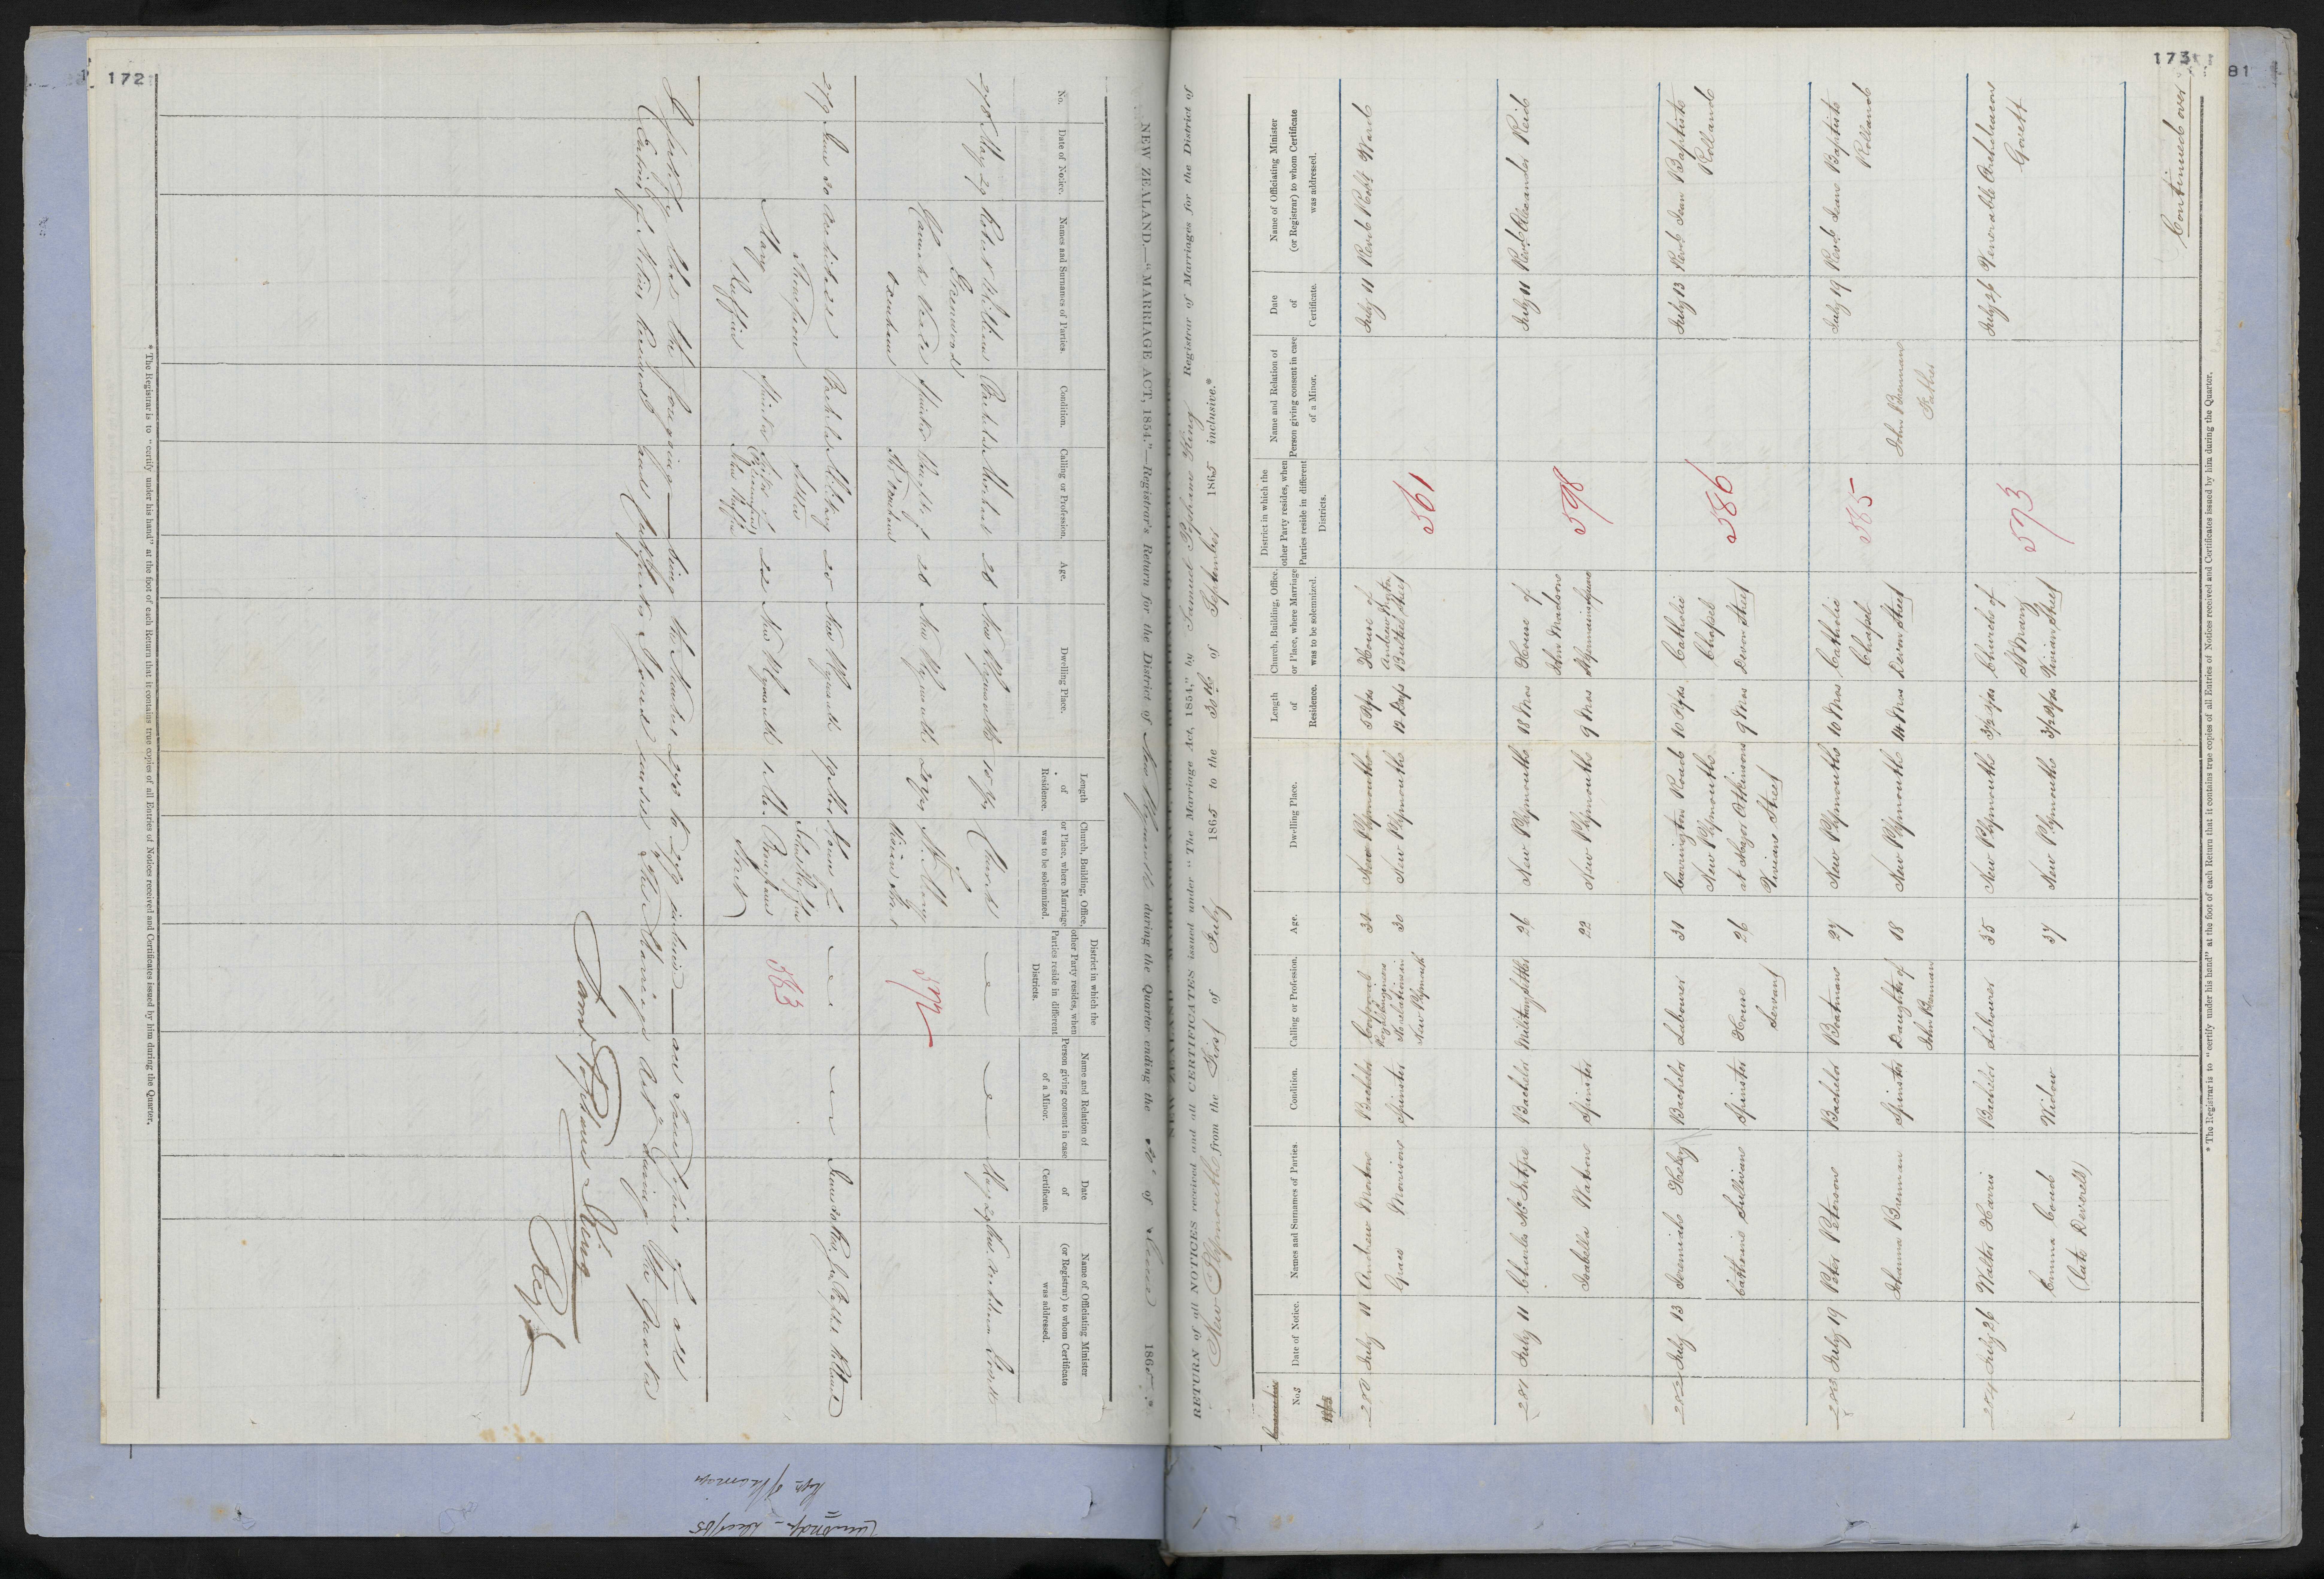 172
NEW ZEALAND.—"MARRIAGE ACT, 1854."—Registrar's Return for the District of New Plymouth during the Quarter ending the 30th of June 1865.*
No.
Date of Notice.
Names and Surnames of Parties.
Condition.
Calling or Profession.
Age.
Dwelling Place.
Length of Residence.
Church, Building, Office, or Place, where Marriage was to be solemnized.
District in which the other Party resides, when Parties reside in different Districts.
Name and Relation of Person giving consent in case of a Minor.
Date of Certificate.
Name of Officiating Minister (or Registrar) to whom Certificate was addressed.
278 May 29 Robert William Bachelor 26 New Plymouth Church May 29
Greenwood
Hannah Spinster 26 New Plymouth St. Mary
Vivian Street
572
279 June 20 Archibald Bachelor Military 25 New Plymouth 19 Mos House of June 20
Thompson Settler
Mary Spinster 22 New Plymouth Brougham
Street
583
I certify that the foregoing being the Numbers 278 to 279 inclusive are true copies of all
Entries of Notices Received and Certificates Issued under "The Marriage Act" during the Quarter
Saml. Popham King
Reg
* The Registrar is to "certify under his hand" at the foot of each Return that it contains true copies of all Entries of Notices received and Certificates issued by him during the Quarter.
173
81
RETURN of all NOTICES received and all CERTIFICATES issued under "The Marriage Act, 1854," by Samuel Popham King Registrar of Marriages for the District of
New Plymouth from the First of July 1865 to the 30th of September 1865 inclusive.*
Nos
Date of Notice.
Names and Surnames of Parties.
Condition.
Calling or Profession.
Age.
Dwelling Place.
Length of Residence.
Church, Building, Office, or Place, where Marriage was to be solemnized.
District in which the other Party resides, when Parties reside in different Districts.
Name and Relation of Person giving consent in case of a Minor.
Date of Certificate.
Name of Officiating Minister (or Registrar) to whom Certificate was addressed.
280 July 11 Andrew Bachelor Corporal 31 New Plymouth House of July 11 Revd Robt Ward
Royal Engineers
Grace Morison Spinster 30 New Plymouth 12 Days Andrew
New Plymouth Street
561
281 July 11 Charles McIntyre Bachelor Military Settler 26 New Plymouth 18 Mos House of July 11 Revd Alexander Reid
John Watson
Isabella Watson Spinster 22 New Plymouth 9 Mos
598
282 July 13 Jeremiah Bachelor Labourer 31 Carrington Road 10 Yrs Catholic July 13 Revd Jean Baptiste
New Plymouth Chapel Rolland
Catherine Sullivan Spinster House 26 at Major Atkinsons 9 Mos Devon Street
Servant Vivian Street
586
283 July 19 Peter Peterson Bachelor Boatman 27 New Plymouth 16 Mos Catholic July 19 Revd Jean Baptiste
Chapel Rolland
Johanna Brennan Spinster Daughter of 18 New Plymouth 14 Mos Devon Street John Brennan
John Brennan Father
585
284 July 26 Walter Harris Bachelor Labourer 35 New Plymouth Church of July 26 Venerable Archdeacon
St Mary Govett
Emma Coad Widow 37 New Plymouth Vivian Street
(late Deverell)
573
Continued over
* The Registrar is to "certify under his hand" at the foot of each Return that it contains true copies of all Entries of Notices received and Certificates issued by him during the Quarter.